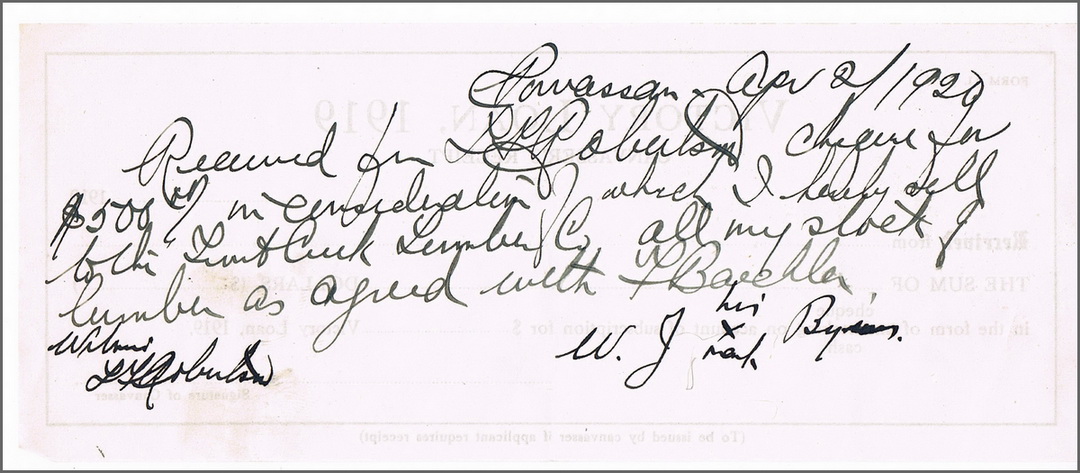 Powassan - Apr 2/1920
Received from L H Robertson, cheque for
$500 00/ in consideration of which I hereby sell
to the Lumber Co, all my stock of
lumber as agreed with
his
W. J mark
Witness
L H Robertson
FORM
VICTORY LOAN, 1919
CANVASSER RECEIPT
191
Received from
THE SUM OF DOLLARS ($
cheque
in the form of on account of subscription for $ Victory Loan, 1919.
cash
Signature of Canvasser
(To be issued by canvasser if applicant requires receipt)